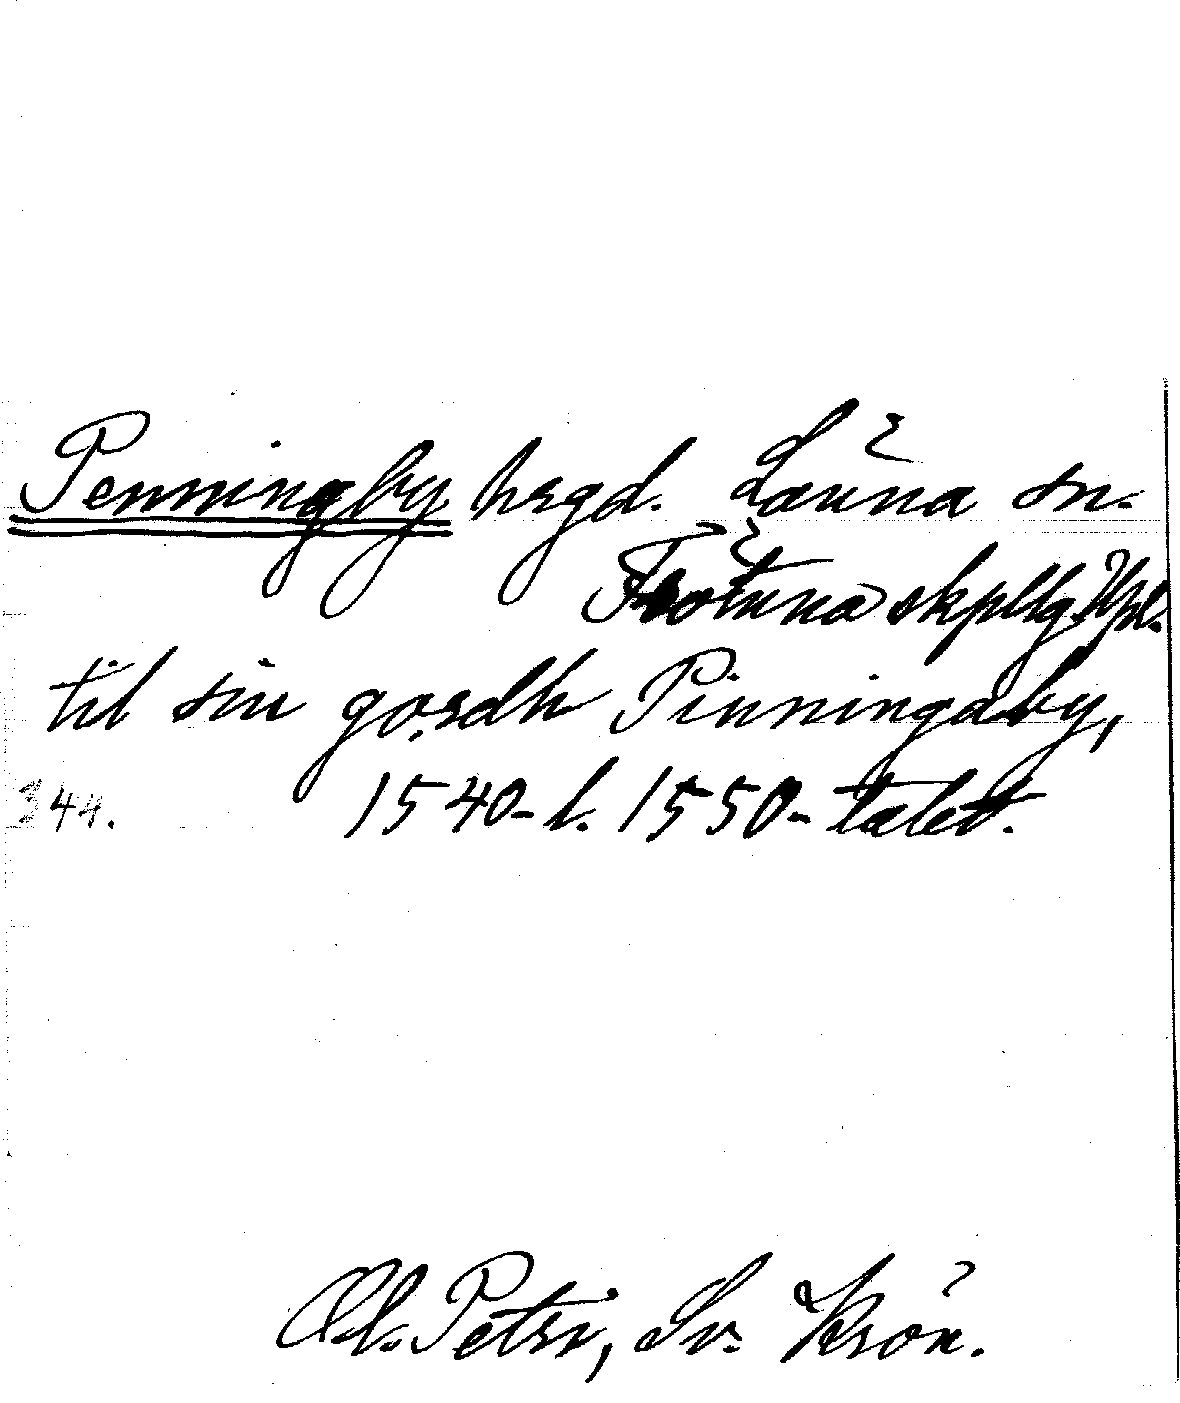 Penningby hrgd. Länna sn.
Frötuna skpllg Upl.
til sin gordh Pinningaby,
344. 1540- l. 1550-talet.
Ol. Petri, Sv. Krön.